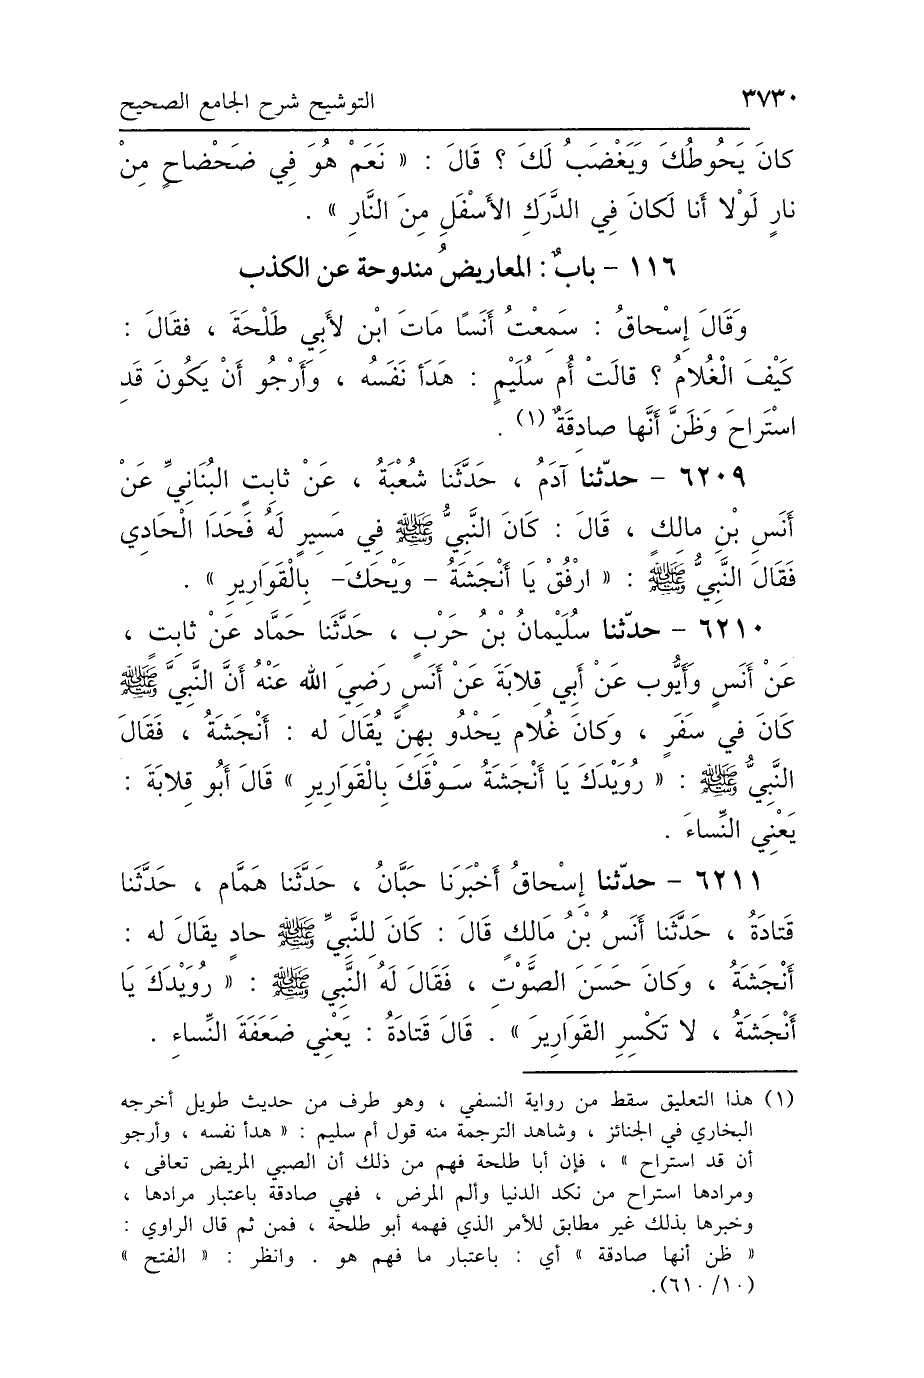 ٣٧٣٠ التوشيح شرح الجامع الصحيح
كانَ يَحُوطُكَ وَيَغْضَبُ لَكَ ؟ قَالَ : « نَعَمْ هُوَ فِي ضَحْضاحٍ مِنْ
نارٍ لَوْلا أنا لَكانَ فِي الدَّرَكِ الأسْفَلِ مِنَ النَّارِ » .
١١٦ – بابٌ : المعاريضُ مندوحة عن الكذب
وَقَالَ إسْحاقُ : سَمِعْتُ أنَسًا مَاتَ ابْن لأبِي طَلْحَةَ ، فقَالَ :
كَيْفَ الْغُلامُ ؟ قالَتْ أُم سُلَيْمٍ : هَدَأ نَفَسُه ، وَأَرْجُو أنْ يَكُونَ قَدِ
اسْتَراحَ وَظَنَّ أنَّها صادِقَةٌ (١) .
٦٢٠٩ – حدّثنا آدَمُ ، حَدَّثَنا شُعْبَةُ ، عَنْ ثابِتٍ البُنَانِيِّ عَنْ
أنَسِ بْنِ مالكٍ ، قَالَ : كَانَ النَّبِيُّ ﷺ فِي مَسِيرٍ لَهُ فَحَدَا الْحَادِي
فَقَالَ النَّبِيُّ ﷺ : « ارْفُقْ يَا أنْجَشَةُ – وَيْحَكَ– بِالْقَوَارِيرِ » .
٦٢١٠ – حدّثنا سُلَيْمانُ بْنُ حَرْبٍ ، حَدَّثَنا حَمَّاد عَنْ ثابِتٍ ،
عَنْ أنَسٍ وَأيُّوب عَنْ أبِي قِلابَةَ عَنْ أنَسٍ رَضِيَ الله عَنْهُ أنَّ النَّبِيَّ ﷺ
كَانَ في سَفَرٍ ، وَكانَ غُلام يَحْدُو بِهِنَّ يُقَالَ له : أنْجَشَةُ ، فَقَالَ
النَّبِيُّ ﷺ : « رُوَيْدَكَ يَا أنْجَشَةُ سَوْقَكَ بِالْقَوارِيرِ » قَالَ أبُو قِلابَةَ :
يَعْنِي النِّساءَ .
٦٢١١ – حدّثنا إسْحاقُ أخْبَرَنا حَبَّانُ ، حَدَّثَنا هَمَّام ، حَدَّثَنا
قَتادَةُ ، حَدَّثَنا أنَسُ بْنُ مَالكٍ قَالَ : كَانَ لِلنَّبِيِّ ﷺ حادٍ يقَالَ له :
أنْجَشَةُ ، وَكانَ حَسَنَ الصَّوْتِ ، فَقَالَ لَهُ النَّبِي ﷺ : « رُوَيْدَكَ يا
أنْجَشَةُ ، لا تَكْسِرِ القَوَارِيرَ » . قَالَ قَتادَةُ : يَعْنِي ضَعَفَةَ النِّساءِ .
(١) هذا التعليق سقط من رواية النسفي ، وهو طرف من حديث طويل أخرجه
البخاري في الجنائز ، وشاهد الترجمة منه قول أم سليم : « هدأ نفسه ، وأرجو
أن قد استراح » ، فإن أبا طلحة فهم من ذلك أن الصبي المريض تعافى ،
ومرادها استراح من نكد الدنيا وألم المرض ، فهي صادقة باعتبار مرادها ،
وخبرها بذلك غير مطابق للأمر الذي فهمه أبو طلحة ، فمن ثم قال الراوي :
« ظن أنها صادقة » أي : باعتبار ما فهم هو . وانظر : « الفتح »
(٦١٠/١٠).